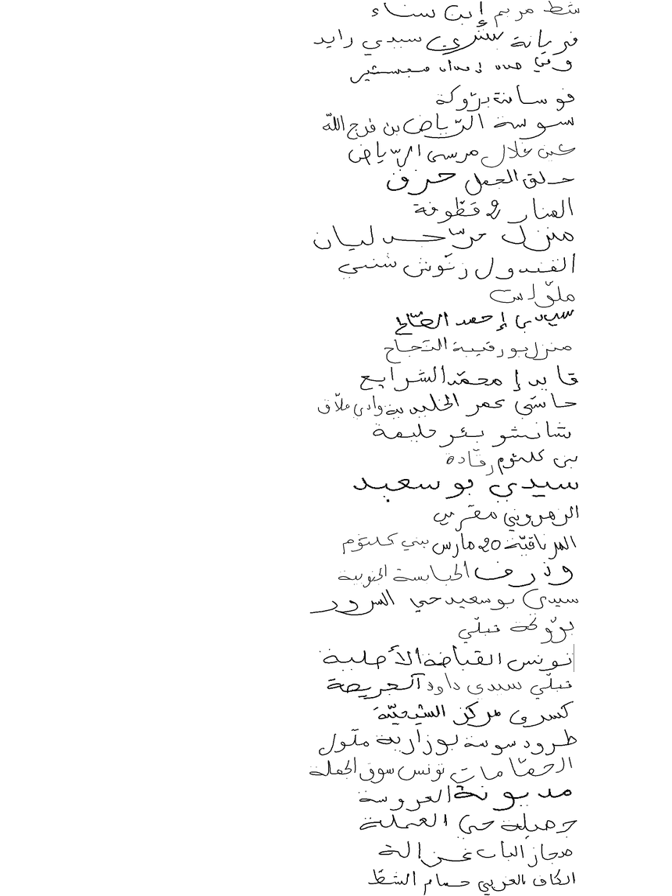 شط مريم إبن سناء
فريانة بشري سيدي رايد
فوسانة برّوكة
سوسة الرّياض بن فرج اللّه
عين غلال مرسى الرّياض
حلق الجمل حزق
المنار 2 قطّوفة
منزل حرّ حدليان
الفندول زنّوش شنني
ملوّلش
سيدي إحمد الصّالح
منزل بورقيبة النّجاح
قايد إ محمّد الشرايع
حاشي عمر الخليدية وادي ملاّق
شانشو بئر حليمة
بني كلثوم رقّادة
سيدي بوسعيد
الزهروني مقرين
المرناقيّة 20 مارس بني كلثوم
وذرف الحبابسة الجنوبية
سيدي بوسعيد حي السرور
برّوكة قبلّي
تونس القباضة الأصلية
قبلّي سيدي داود الجريصة
كسرى مركز الشيحيّة
طرود سوسة بوزارية متلول
الحمّامات تونس سوق الجملة
مديونة العروسة
جميلة حي العملة
مجاز الباب غزالة
الكاف الغربي حمام الشطّ